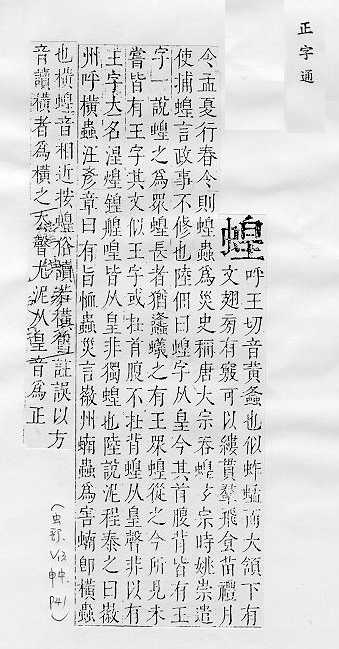 正字通
蝗
呼王切音黃螽也似蚱蜢而大頷下有
文翅旁有竅可以縷貫羣飛食苗禮月
令孟夏行春令則蝗蟲為災史稱唐大宗吞蝗玄宗時姚崇遣
使捕蝗言政事不修也陸佃曰蝗字从皇今其首腹背皆有王
字一說蝗之為眾蝗長者猶蠭蟻之有王眾蝗從之今所見未
嘗皆有王字其文似王字或在首腹不在背蝗从皇聲非以有
王字大名湟煌鍠艎喤皆从皇非獨蝗也陸說泥程泰之曰徽
州呼橫蟲汪彥章曰有旨恤蟲災言徽州蝻蟲為害蝻即橫蟲
也橫蝗音相近按蝗俗讀若橫舊註誤以方
音讀橫者為橫之本聲尤泥从皇音為正
(虫部, V.13 P41)